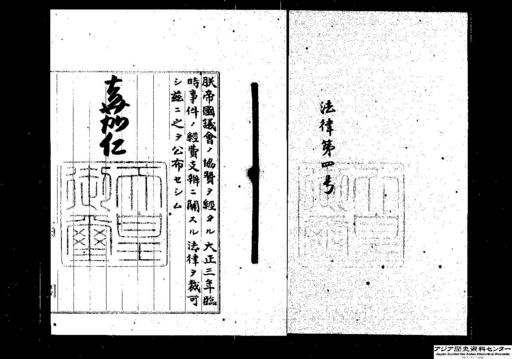 法律第四号
朕帝國議會ノ協賛ヲ經タル大正三年臨
時事件ノ經費支辨ニ關スル法律ヲ裁可
シ茲ニ之ヲ公布セシム
嘉仁
天皇
御璽
アジア歴史資料センター
Japan Center for Asian Historical Records